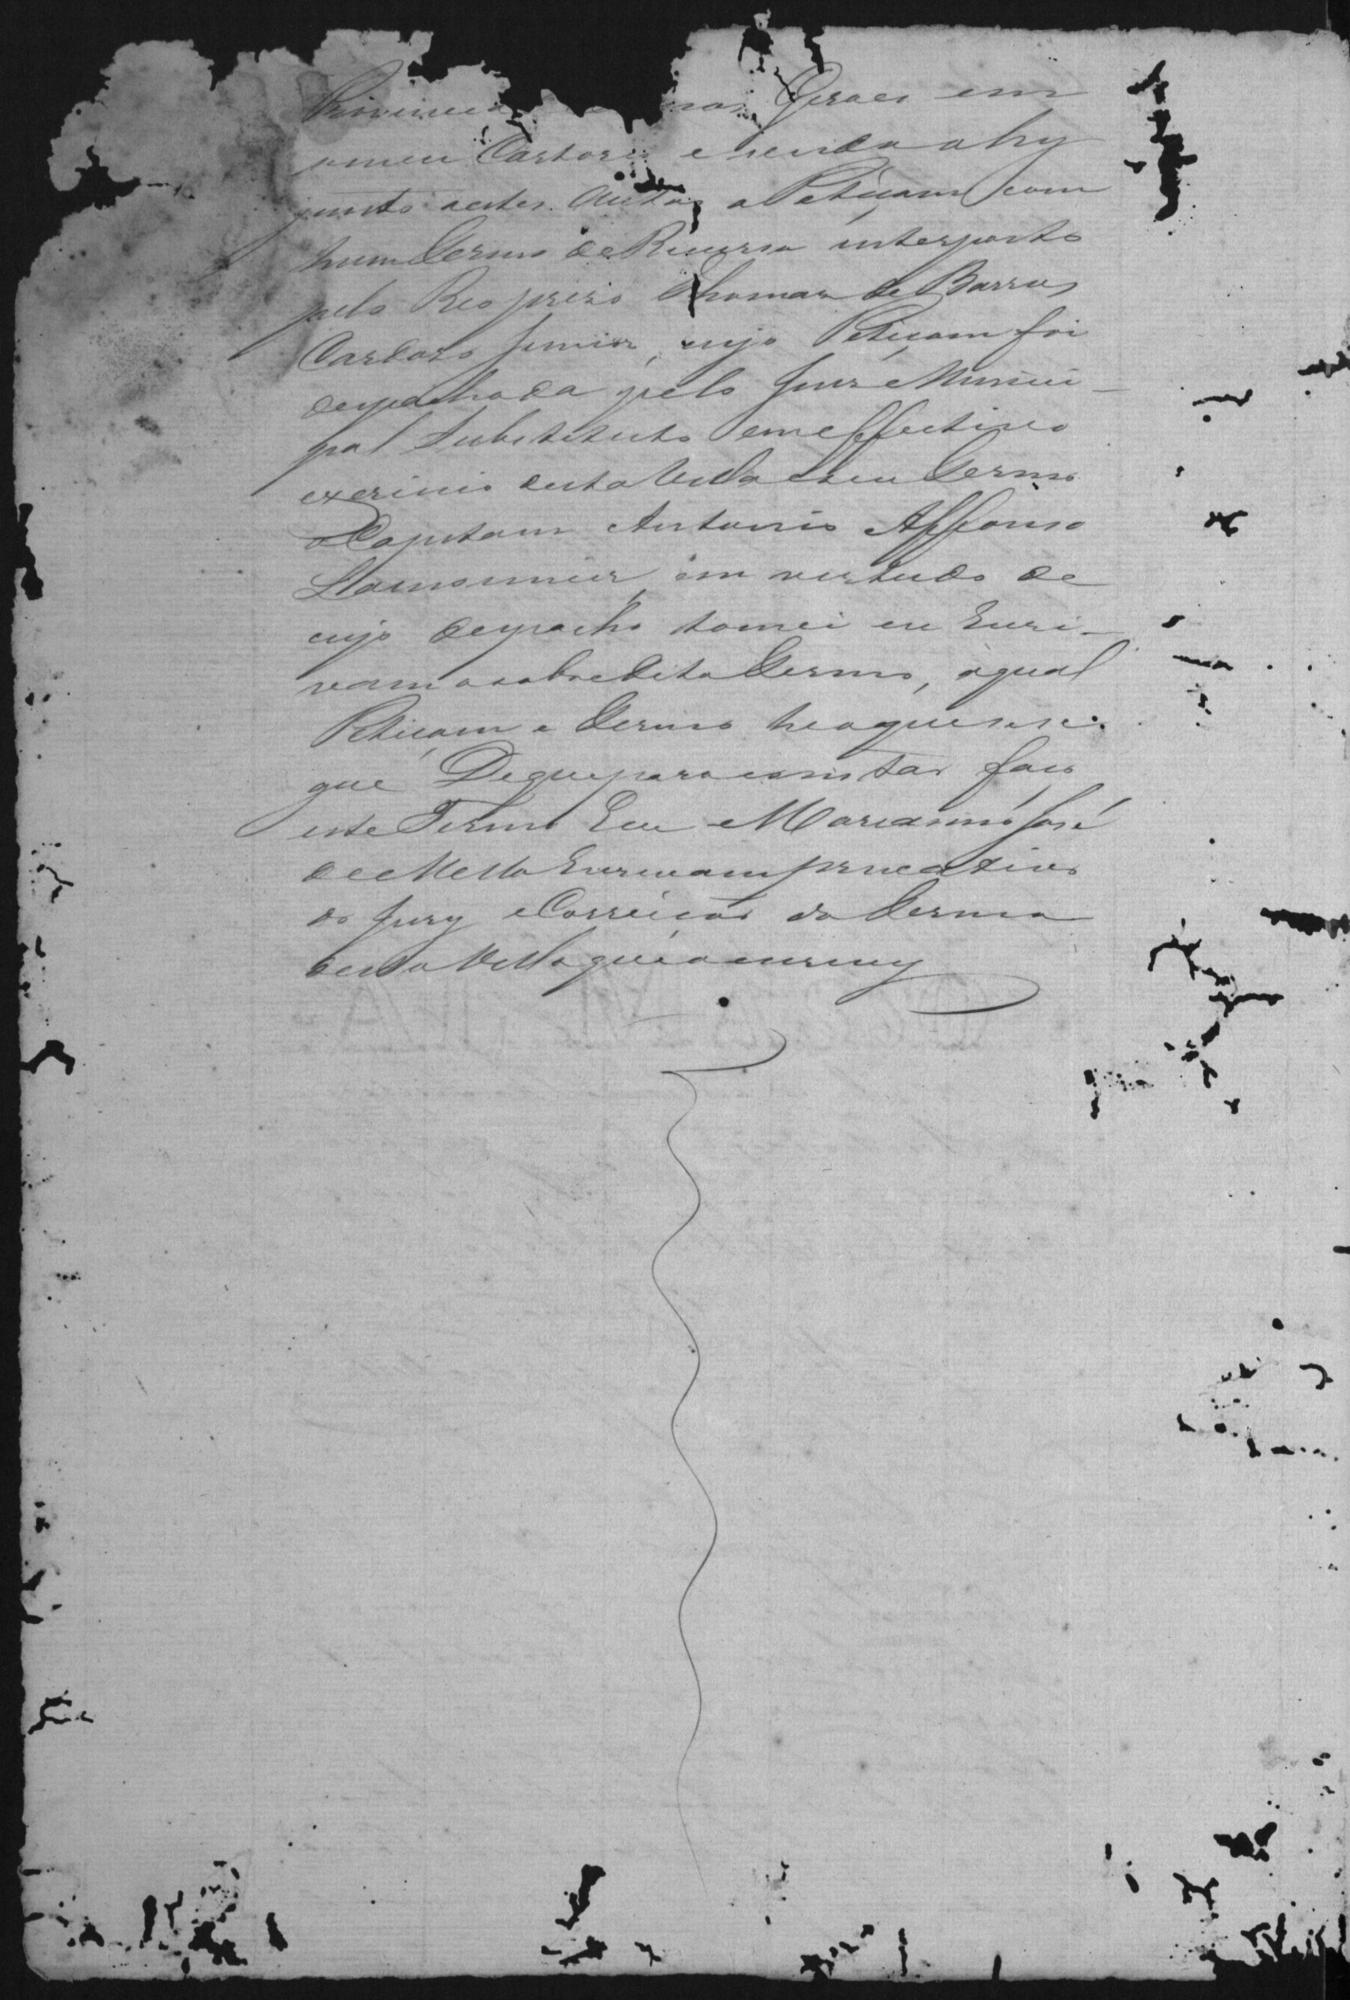 Provincia nas Geraes em
o meu Cartorio e sendo ahy
junto a estes Autos a Peticam com
hum Termo de Recurso interposto
pelo Reo prezo Thomas de Barros
Cardoso Junior, cuja Peticam foi
despachada pelo Juis Munici-
pal Substituto em effectivo
exercicio desta Villa e seu Termo
o Capitam Antonio Affonso
em vertude de
cujo despacho tomei eu Escri-
vam o sobredito Termo, a qual
Peticam e Termo he a que se se-
gue De que para constar faço
este Termo Eu Marianno José
de Mello Escrivam privativo
do Jury e Correicão do Termo
desta Villa que o escrevy